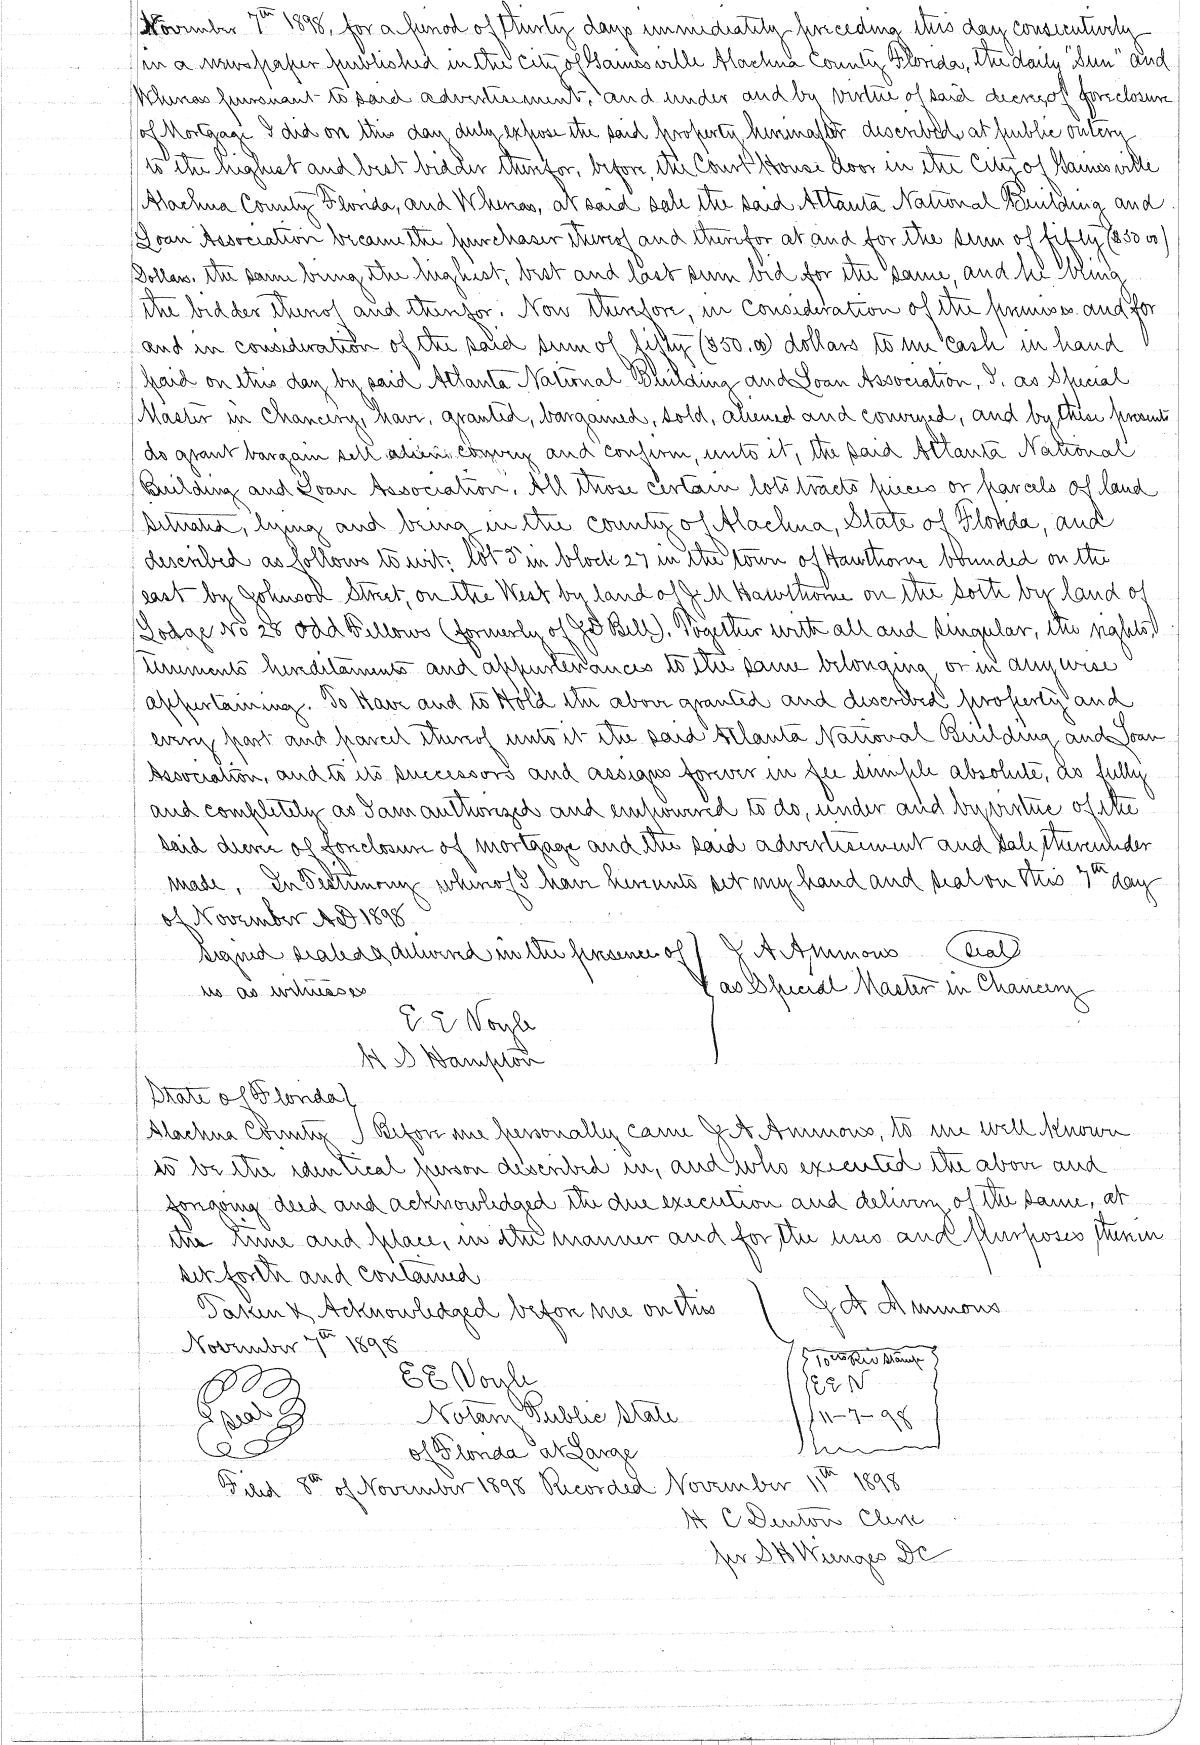 November 7th 1898, for a period of thirty days immediately preceding this day consecutively
in a newspaper published in the city of Gainesville Alachua County Florida, the daily "Sun" and
Whereas pursuant to said advertisement, and under and by virtue of said decree of foreclosure
of Mortgage I did on this day duly expose the said property hereinafter described at public outcry
to the highest and best bidder therefor, before the Court House door in the City of Gainesville
Alachua County Florida, and Whereas, at said sale the said Atlanta National Building and
Loan Association became the purchaser thereof and therefor at and for the sum of fifty ($50 00)
Dollars. the same being the highest, best and last sum bid for the same, and he being
the bidder thereof and therefor. Now therefore, in consideration of the premises and for
and in consideration of the said sum of fifty ($50.00) dollars to me cash in hand
paid on this day by said Atlanta National Building and Loan Association, I. as Special
Master in Chancery, have, granted, bargained, sold, aliened and conveyed, and by these presents
do grant bargain sell alien convey and confirm, unto it, the said Atlanta National
Building and Loan Association, All those certain lots tracts pieces or parcels of land
situated, lying and being in the county of Alachua, State of Florida, and
described as follows to wit: lot 5 in block 27 in the town of Hawthorne bounded on the
east by Johnson Street, on the West by land of J M Hawthorne on the soth by land of
Lodge No 28 Odd Fellows (formerly of Bell). Together with all and singular, the rights,
tenements hereditaments and appurtenances to the same belonging or in anywise
appertaining. To Have and to Hold the above granted and described property and
every part and parcel thereof unto it the said Atlanta National Building and Loan
Association, and to its successors and assigns forever in fee simple absolute, as fully
and completely as I am authorized and empowered to do, under and by virtue of the
said decree of foreclosure of mortgage and the said advertisement and sale thereunder
made. In Testimony whereof I have hereunto set my hand and seal on this 7th day
of November AD 1898
Signed sealed & delivered in the presence of } J A Ammons (seal)
us as witnesses as Special Master in Chancery
E E Voyle
H S Hampton
State of Florida }
Alachua County } Before me personally came J A Ammons, to me well known
to be the identical person described in, and who executed the above and
foregoing deed and acknowledged the due execution and delivery of the same, at
the time and place, in the manner and for the uses and purposes therein
set forth and contained
Taken & Acknowledged before me on this } J A Ammons
November 7th 1898
10 cts Rev Stamp
E E Voyle E E V
seal Notary Public State 11-7-98
of Florida at Large
Filed 8th of November 1898 Recorded November 11th 1898
H C Denton Clerk
per S H Wienges DC